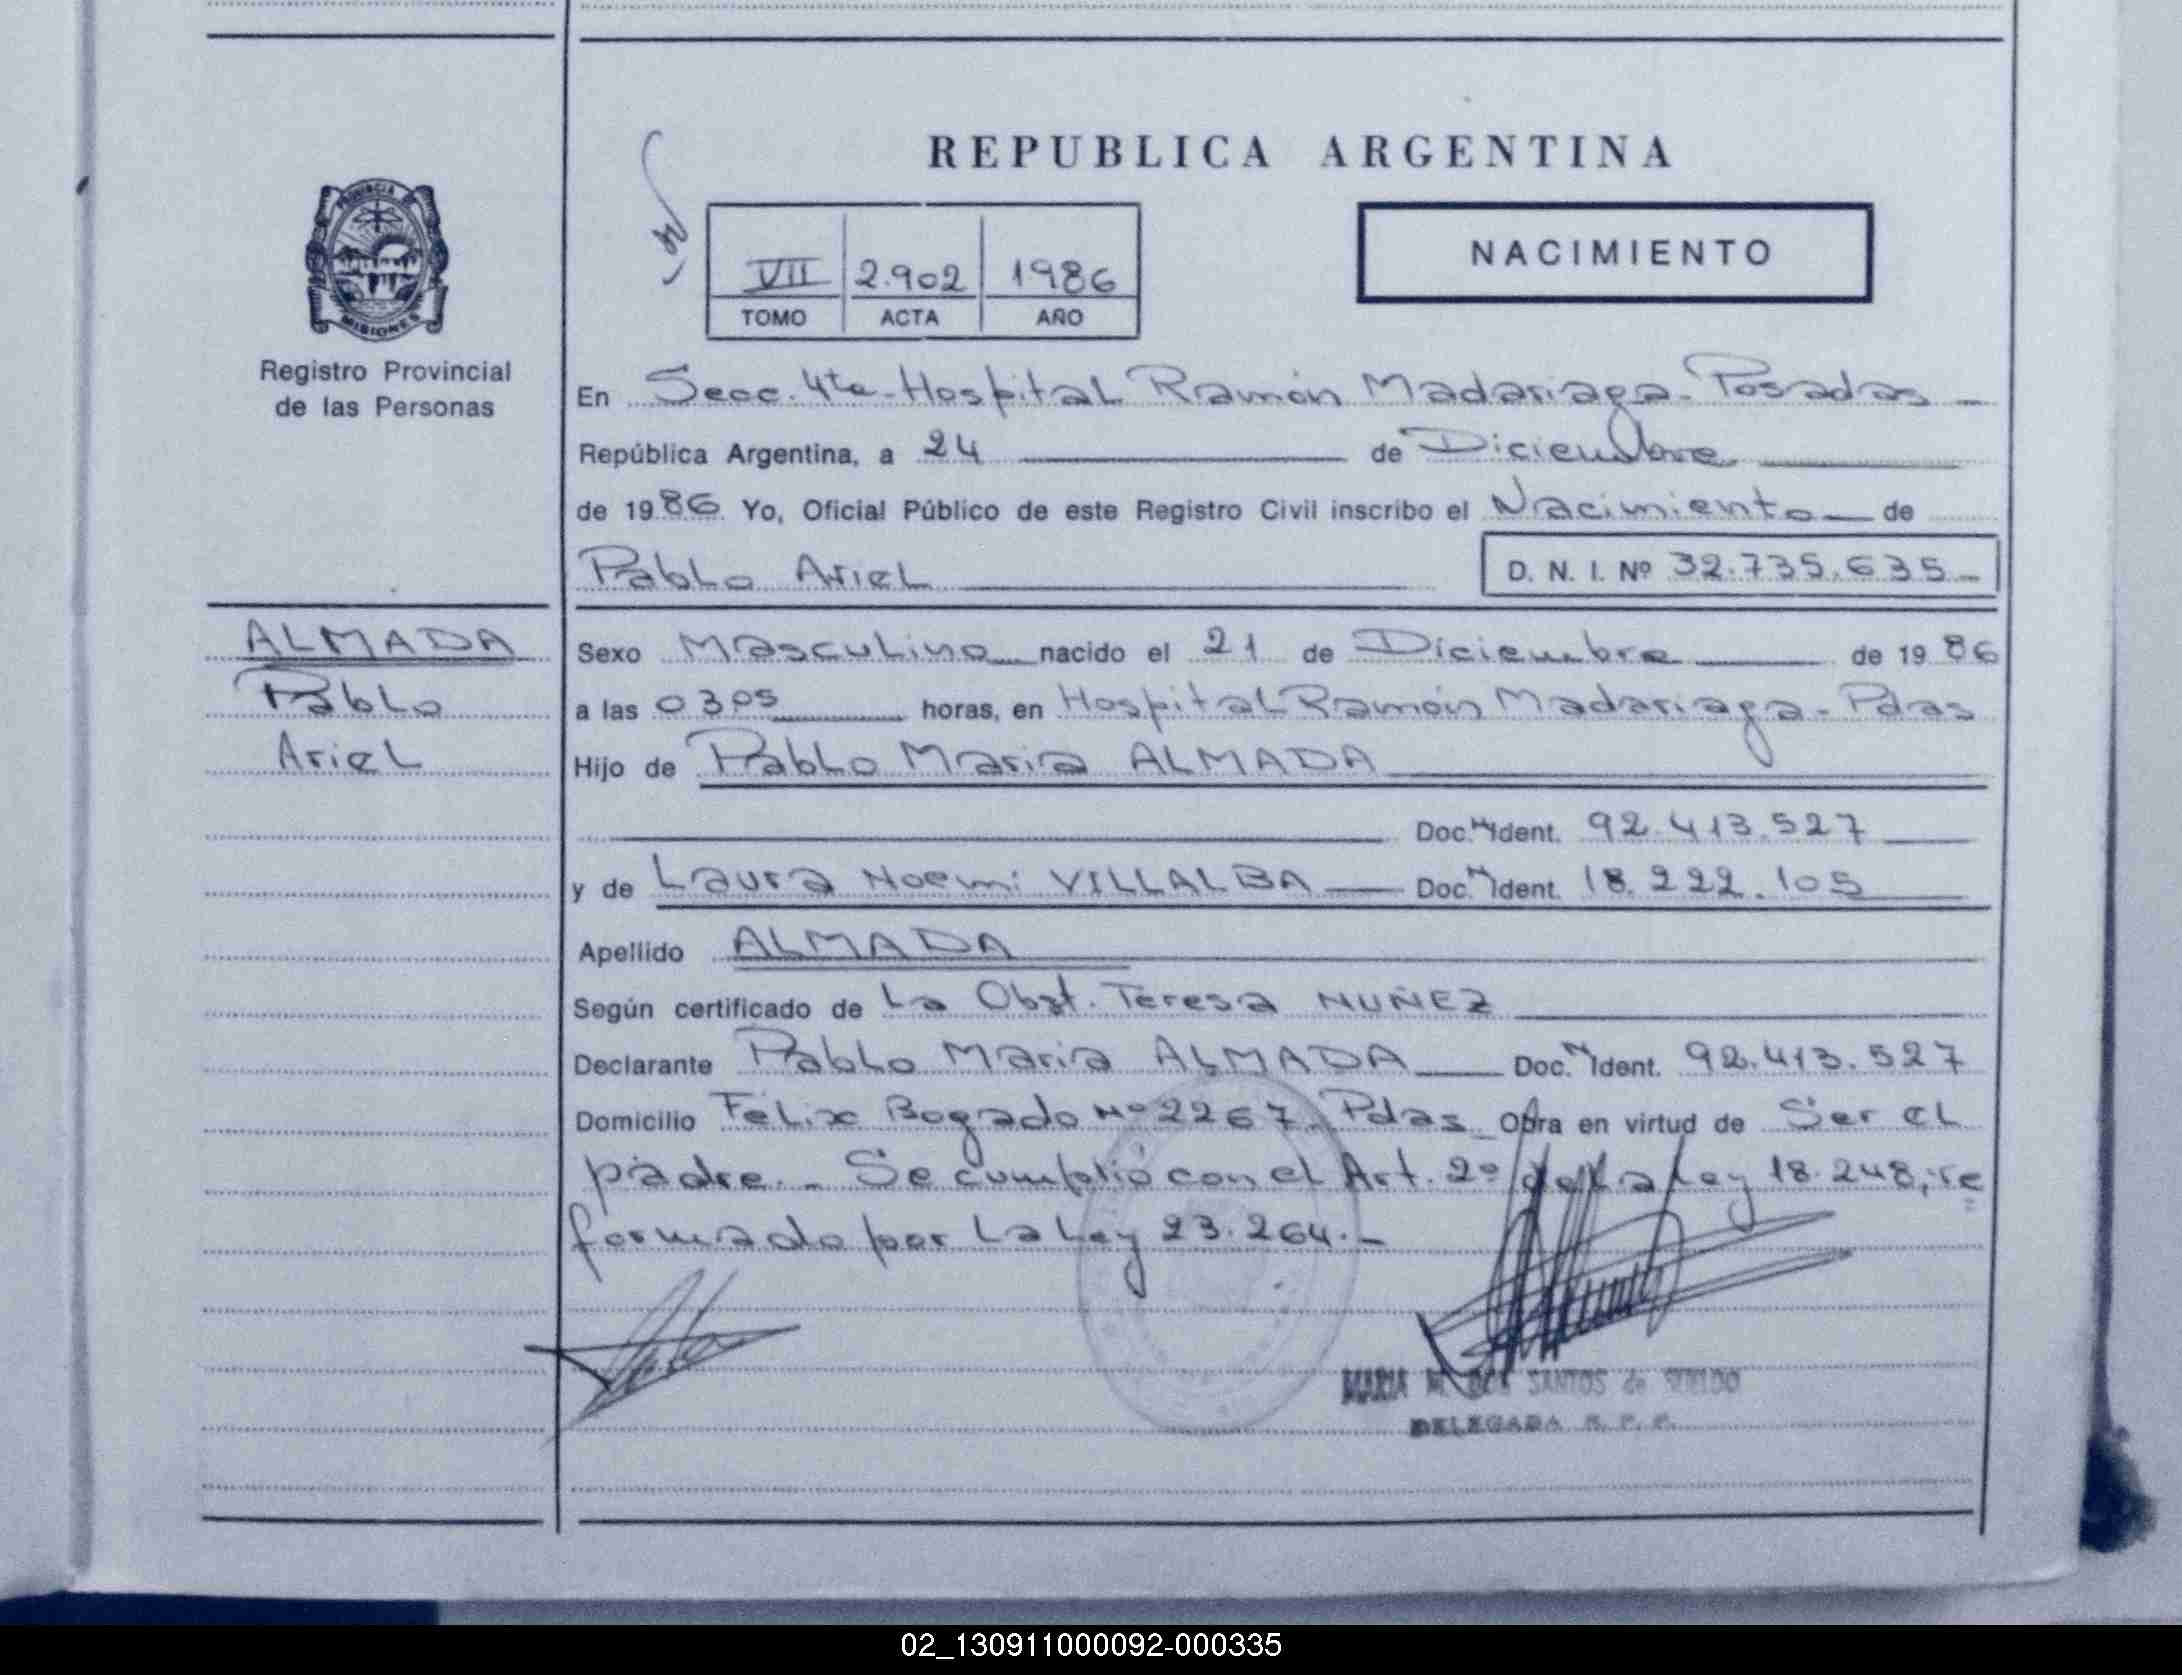 REPUBLICA ARGENTINA
PROVINCIA DE
MISIONES
Registro Provincial
de las Personas
VII 2.902 1986
TOMO ACTA AÑO
NACIMIENTO
En Secc. 4ta - Hospital Ramón Madariaga - Posadas -
República Argentina, a 24 de Diciembre
de 1986 Yo, Oficial Público de este Registro Civil inscribo el Nacimiento de
Pablo Ariel D. N. I. Nº 32.735.635 -
ALMADA
Pablo
Ariel
Sexo Masculino nacido el 21 de Diciembre de 1986
a las 0305 horas, en Hospital Ramón Madariaga - Pdas
Hijo de Pablo Maria ALMADA
Doc. Ident. 92.413.527
y de Laura Noemi VILLALBA Doc. Ident. 18.222.105
Apellido ALMADA
Según certificado de La Obst. Teresa NUÑEZ
Declarante Pablo Maria ALMADA Doc. Ident. 92.413.527
Domicilio Félix Bogado Nº 2267 Pdas Obra en virtud de Ser el
padre. - Se cumplió con el Art. 2º de la Ley 18.248, re
formado por la Ley 23.264. -
MARIA M. DOS SANTOS de
DELEGADA R. P. P.
02_130911000092-000335